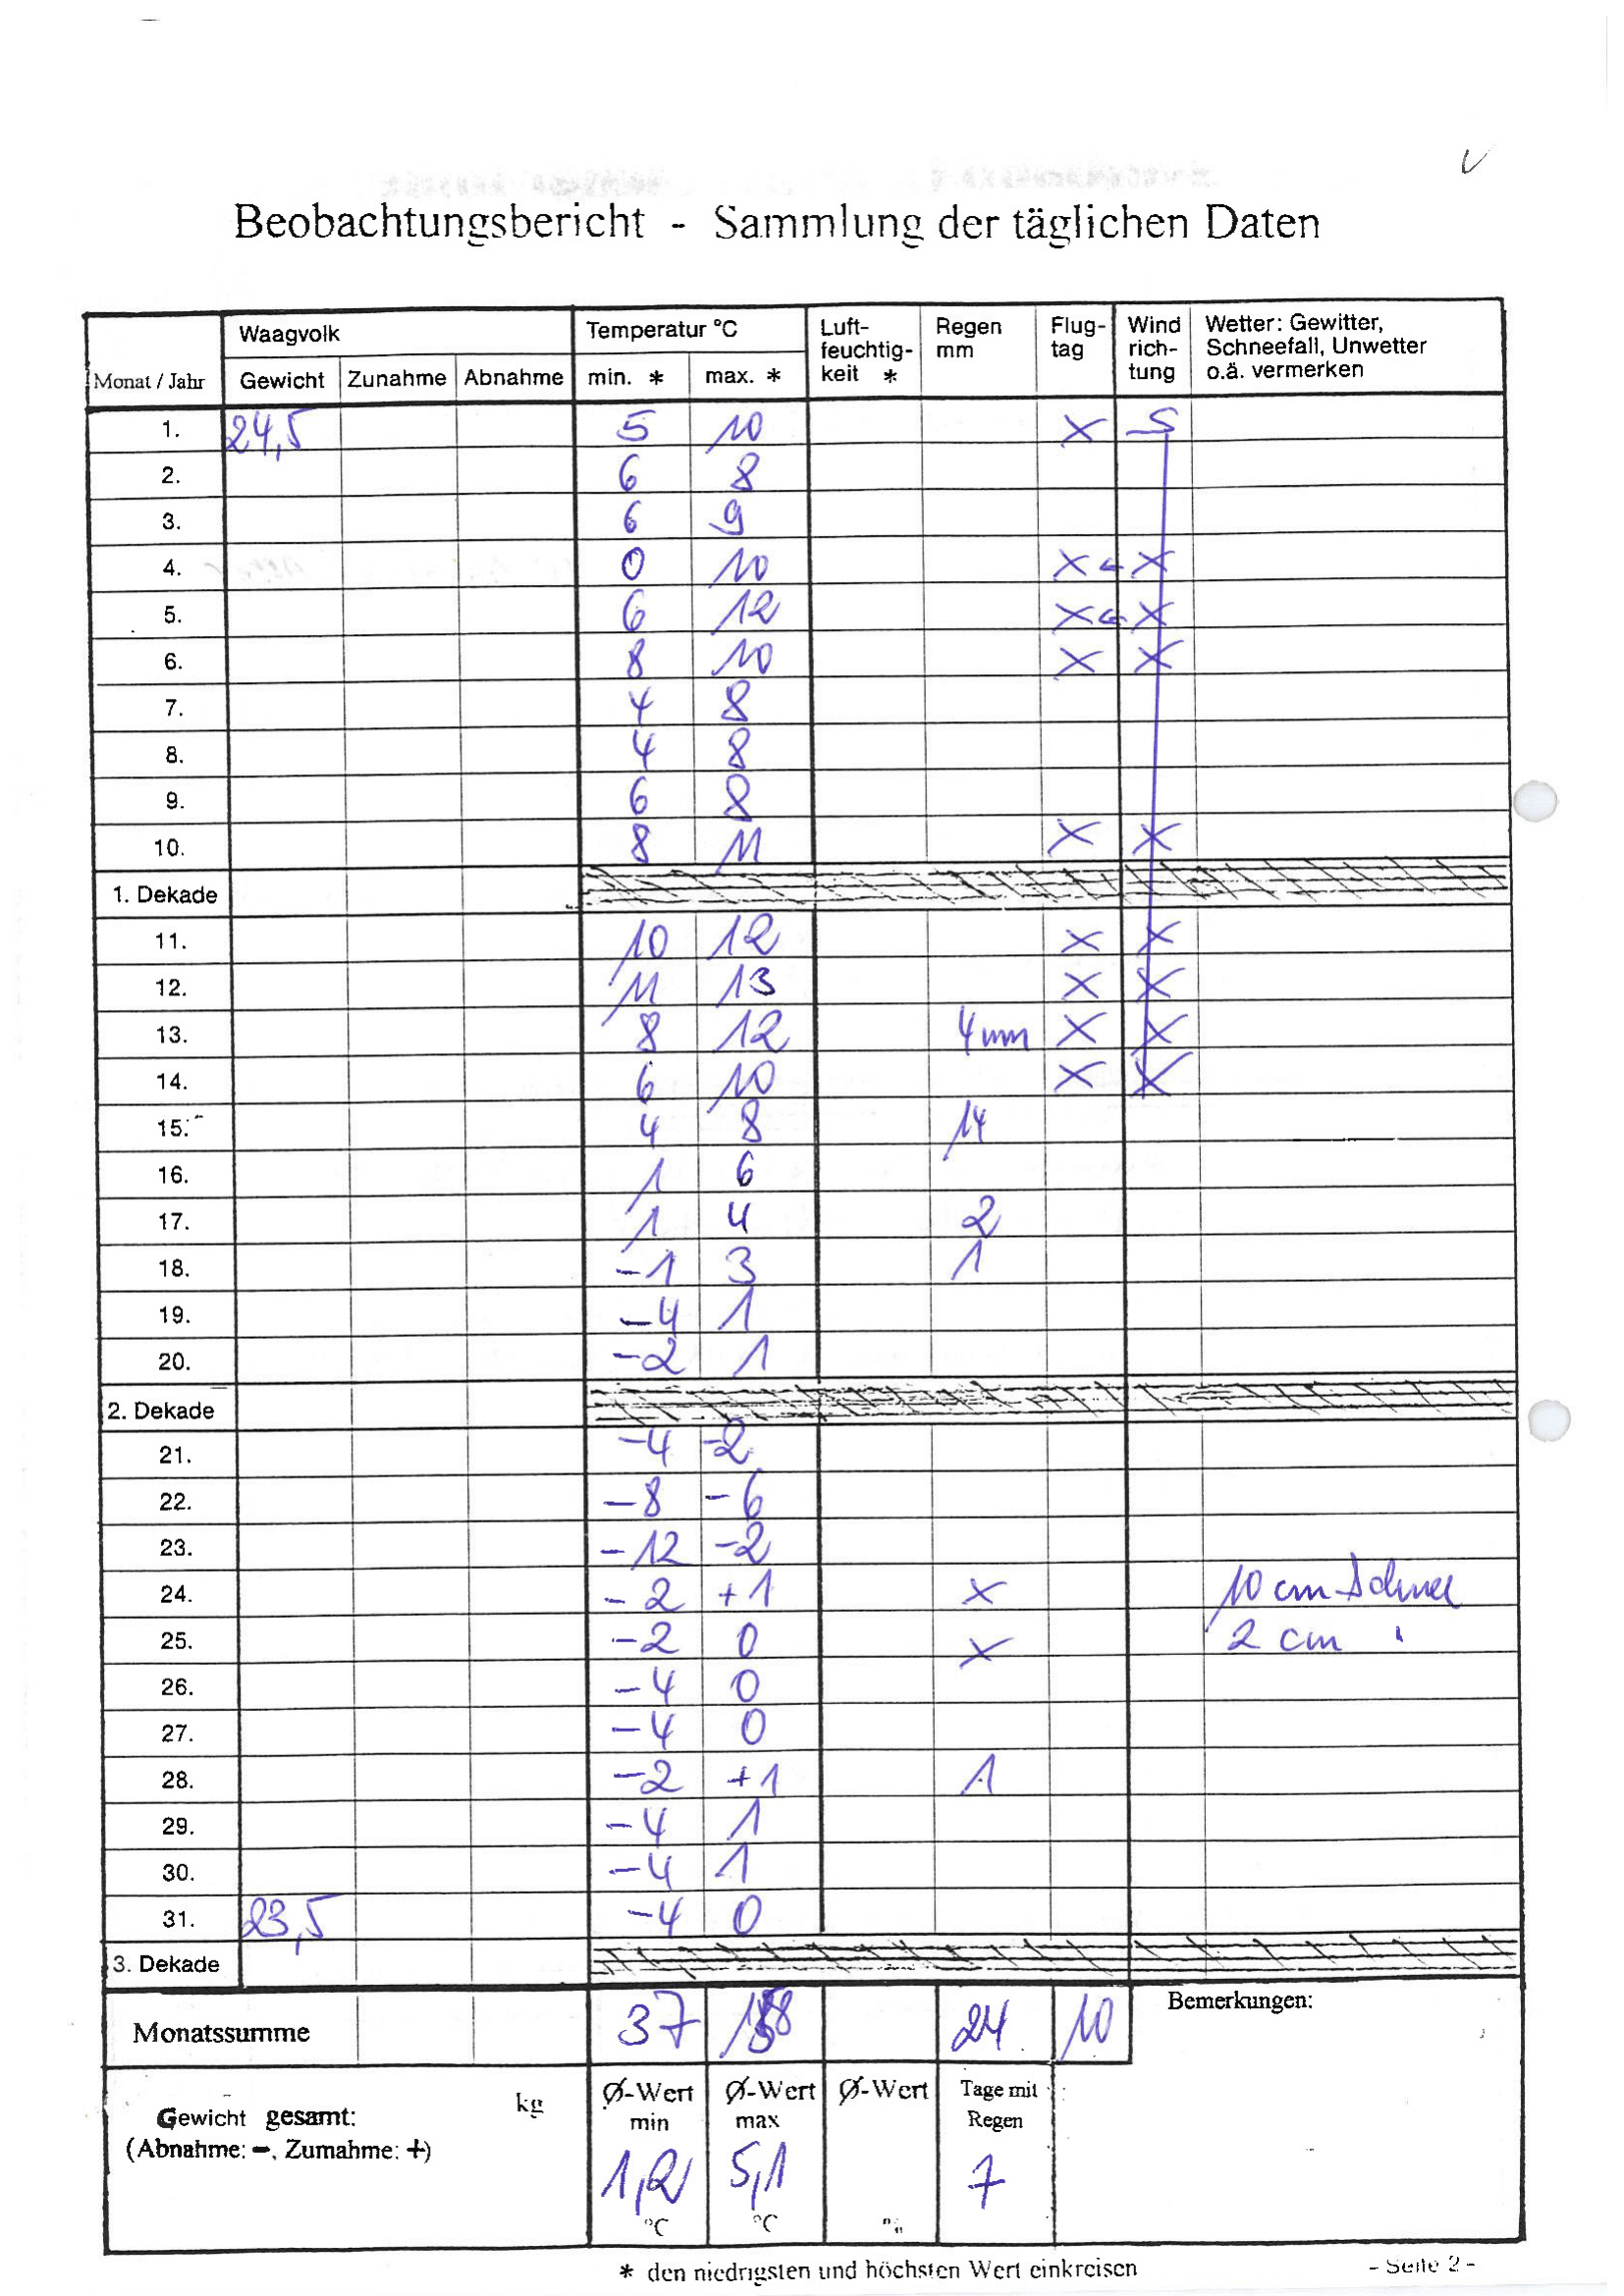 Beobachtungsbericht - Sammlung der täglichen Daten
Monat / Jahr Waagvolk Temperatur °C Luft-feuchtig-keit * Regen mm Flug-tag Wind rich-tung Wetter: Gewitter, Schneefall, Unwetter o.ä. vermerken
Gewicht Zunahme Abnahme min. * max. *
1. 24,5 5 10 X S
2. 6 8
3. 6 9
4. 0 10 X X
5. 6 12 X X
6. 8 10 X X
7. 4 8
8. 4 8
9. 6 8
10. 8 11 X X
1. Dekade
11. 10 12 X X
12. 11 13 X X
13. 8 12 4 mm X X
14. 6 10 X X
15. 4 8 14
16. 1 6
17. 1 4 2
18. -1 3 1
19. -4 1
20. -2 1
2. Dekade
21. -4 -2
22. -8 -6
23. -12 -2
24. -2 +1 X 10 cm Schnee
25. -2 0 X 2 cm "
26. -4 0
27. -4 0
28. -2 +1 1
29. -4 1
30. -4 1
31. 23,5 -4 0
3. Dekade
Monatssumme 37 24 10 Bemerkungen:
Gewicht gesamt: kg
(Abnahme: -, Zumahme: +)
Ø-Wert min 1,2 °C
Ø-Wert max 5,1 °C
Ø-Wert
Tage mit Regen 7
* den niedrigsten und höchsten Wert einkreisen
- Seite 2 -